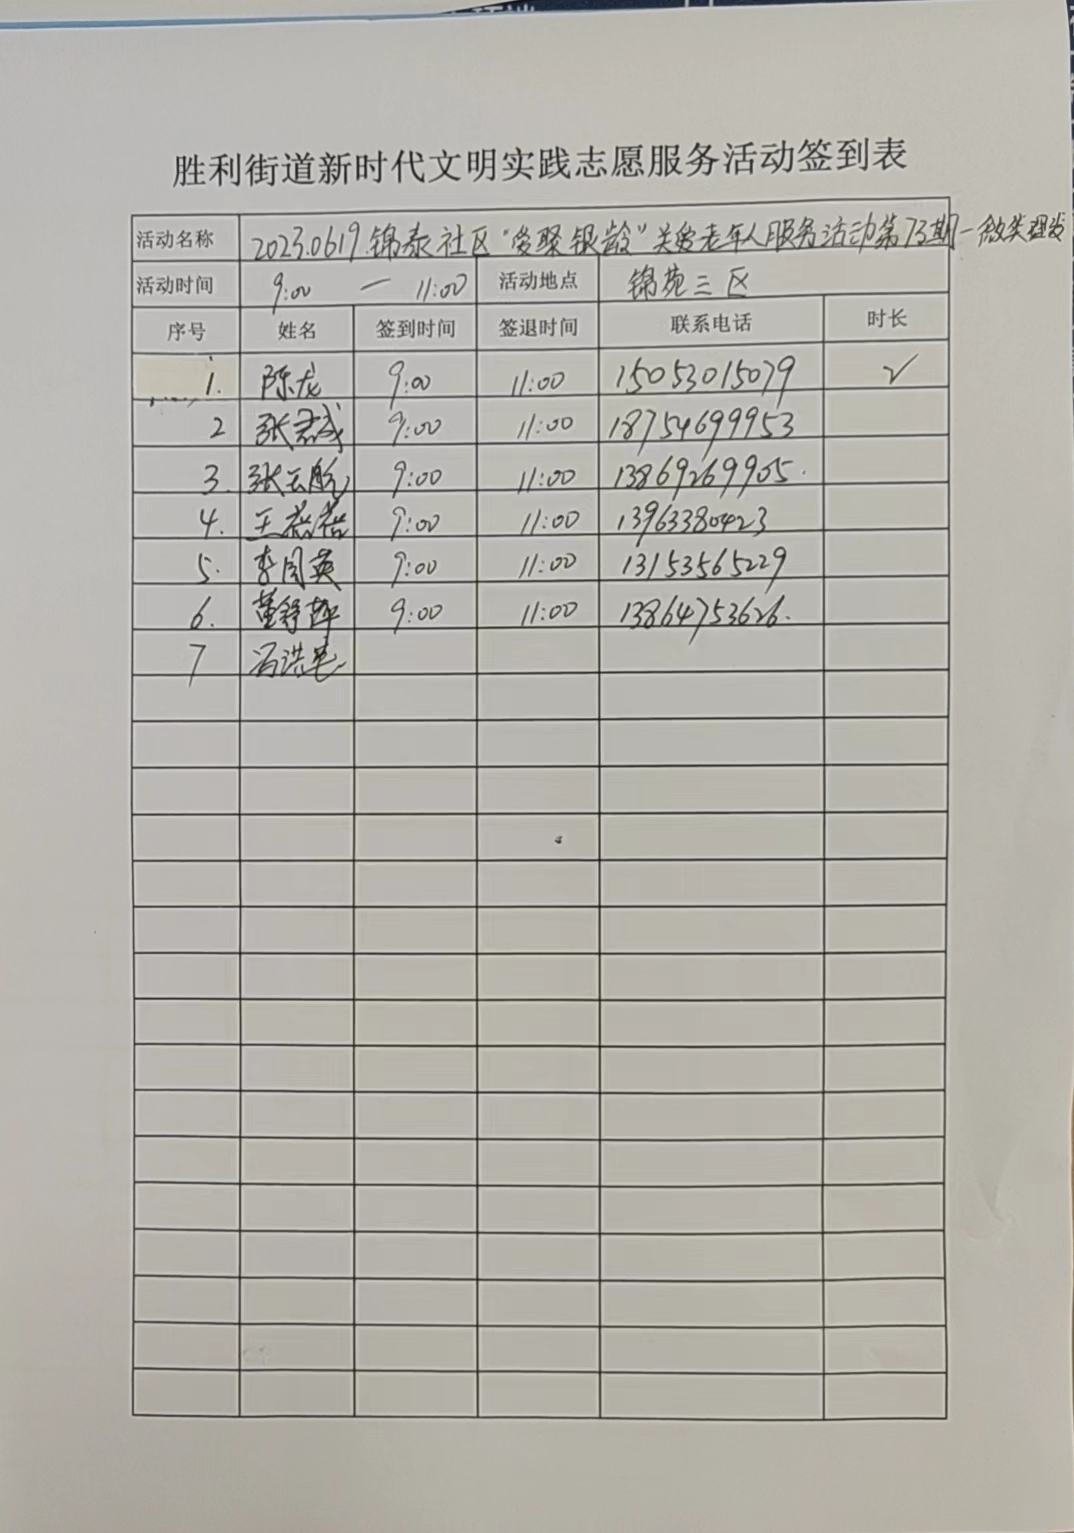 胜利街道新时代文明实践志愿服务活动签到表
活动名称 2023.0619.锦泰社区"爱聚银龄"关爱老年人服务活动第73期—微笑理发
活动时间 9:00 — 11:00 活动地点 锦苑三区
序号 姓名 签到时间 签退时间 联系电话 时长
1. 陈龙 9:00 11:00 15053015079 √
2 张君成 9:00 11:00 18754699953
3. 张云航 9:00 11:00 13869269905.
4. 王蓓蓓 9:00 11:00 13963380423
5. 李同英 9:00 11:00 13153565229
6. 董 9:00 11:00 13864753626.
7 冯洪